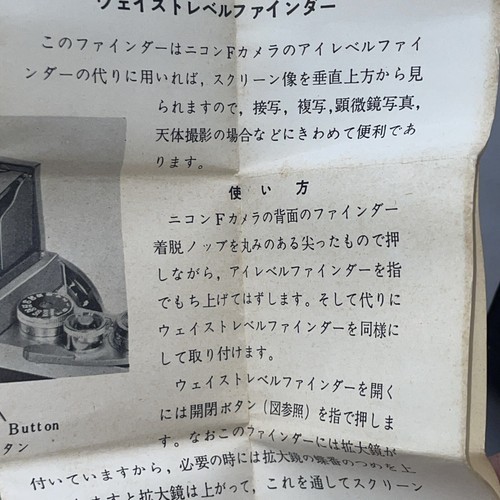 ウェイストレベルファインダー
このファインダーはニコンFカメラのアイレベルファイ
ンダーの代りに用いれば，スクリーン像を垂直上方から見
られますので，接写，複写，顕微鏡写真，
天体撮影の場合などにきわめて便利であ
ります。
使い方
ニコンFカメラの背面のファインダー
着脱ノップを丸みのある尖ったもので押
しながら，アイレベルファインダーを指
でもち上げてはずします。そして代りに
ウェイストレベルファインダーを同様に
して取り付けます。
ウェイストレベルファインダーを開く
には開閉ボタン（図参照）を指で押しま
す。なおこのファインダーには拡大鏡が
Button
タン
付いていますから，必要の時には拡大鏡の蝶番のつめを上
ますと拡大鏡は上がって，これを通してスクリーン